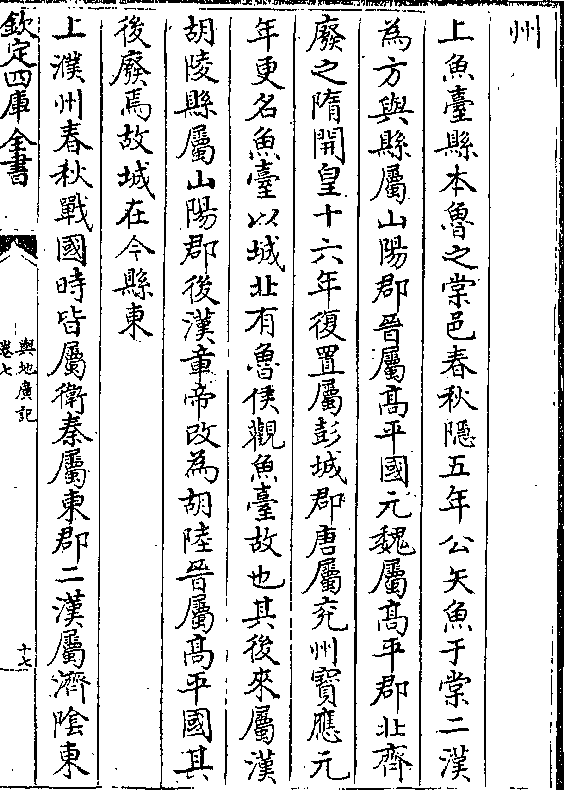 州
上魚臺縣本魯之棠邑春秋隱五年公矢魚于棠二漢
為方與縣屬山陽郡晉屬髙平國元魏屬髙平郡北齊
廢之隋開皇十六年復置屬彭城郡唐屬兖州寳應元
年更名魚臺以城北有魯侯觀魚臺故也其後來屬漢
胡陵縣屬山陽郡後漢章帝改為胡陸晉屬髙平國其
後廢焉故城在今縣東
上濮州春秋戰國時皆屬衛秦屬東郡二漢屬濟隂東
欽定四庫全書
輿地廣記
卷七
十七